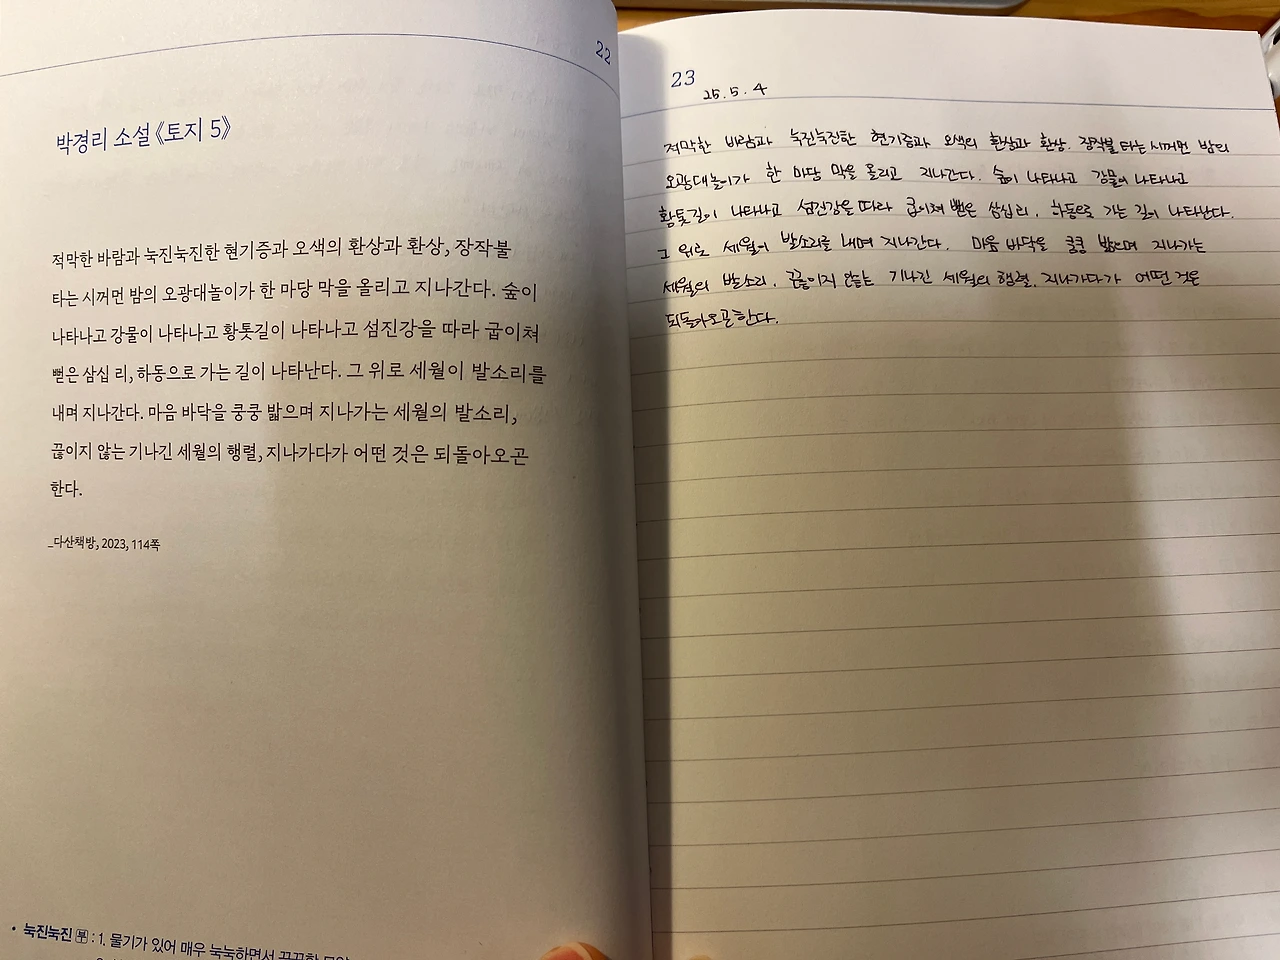 22
박경리 소설《토지 5》
적막한 바람과 눅진눅진한 현기증과 오색의 환상과 환상, 장작불
타는 시꺼먼 밤의 오광대놀이가 한 마당 막을 올리고 지나간다. 숲이
나타나고 강물이 나타나고 황톳길이 나타나고 섬진강을 따라 굽이쳐
뻗은 삼십 리, 하동으로 가는 길이 나타난다. 그 위로 세월이 발소리를
내며 지나간다. 마음 바닥을 쿵쿵 밟으며 지나가는 세월의 발소리,
끊이지 않는 기나긴 세월의 행렬, 지나가다가 어떤 것은 되돌아오곤
한다.
_다산책방, 2023, 114쪽
• 눅진눅진 [부] : 1. 물기가 있어 매우 눅눅하면서 끈끈한 모양
23
25. 5. 4
적막한 바람과 눅진눅진한 현기증과 오색의 환상과 환상. 장작불 타는 시꺼먼 밤의
오광대놀이가 한 마당 막을 올리고 지나간다. 숲이 나타나고 강물이 나타나고
황톳길이 나타나고 섬진강을 따라 굽이쳐 뻗은 삼십리, 하동으로 가는 길이 나타난다.
그 위로 세월이 발소리를 내며 지나간다. 마음 바닥을 쿵쿵 밟으며 지나가는
세월의 발소리, 끊이지 않는 기나긴 세월의 행렬, 지나가다가 어떤 것은
되돌아오곤한다.